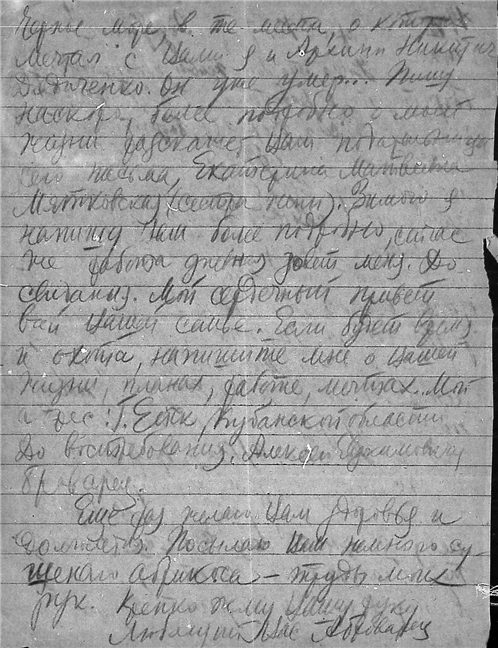 Черное море, в те места, о которых
мечтал с Вами я и Архипп Никитич
Дядиченко. Он уже умер... Пишу
наскоро, более подробно о моей
жизни расскажет Вам подательница
сего письма, Екатерина Матвеевна
(сестра жены). Зимою я
напишу Вам более подробно, сейчас
же работа дневная меня. До
свидания. Мой сердечный привет
всей Вашей семье. Если будет время
и охота, напишите мне о Вашей
жизни, планах, работе, мечтах. Мой
адрес: г. Ейск, Кубанской области
До востребования. Алексей
Броварец.
Еще раз желаю Вам здоровья и
долголетия. Посылаю Вам немного су-
шеного абрикоса – труды моих
рук. Крепко жму Вашу руку
Любящий Вас А Броварец